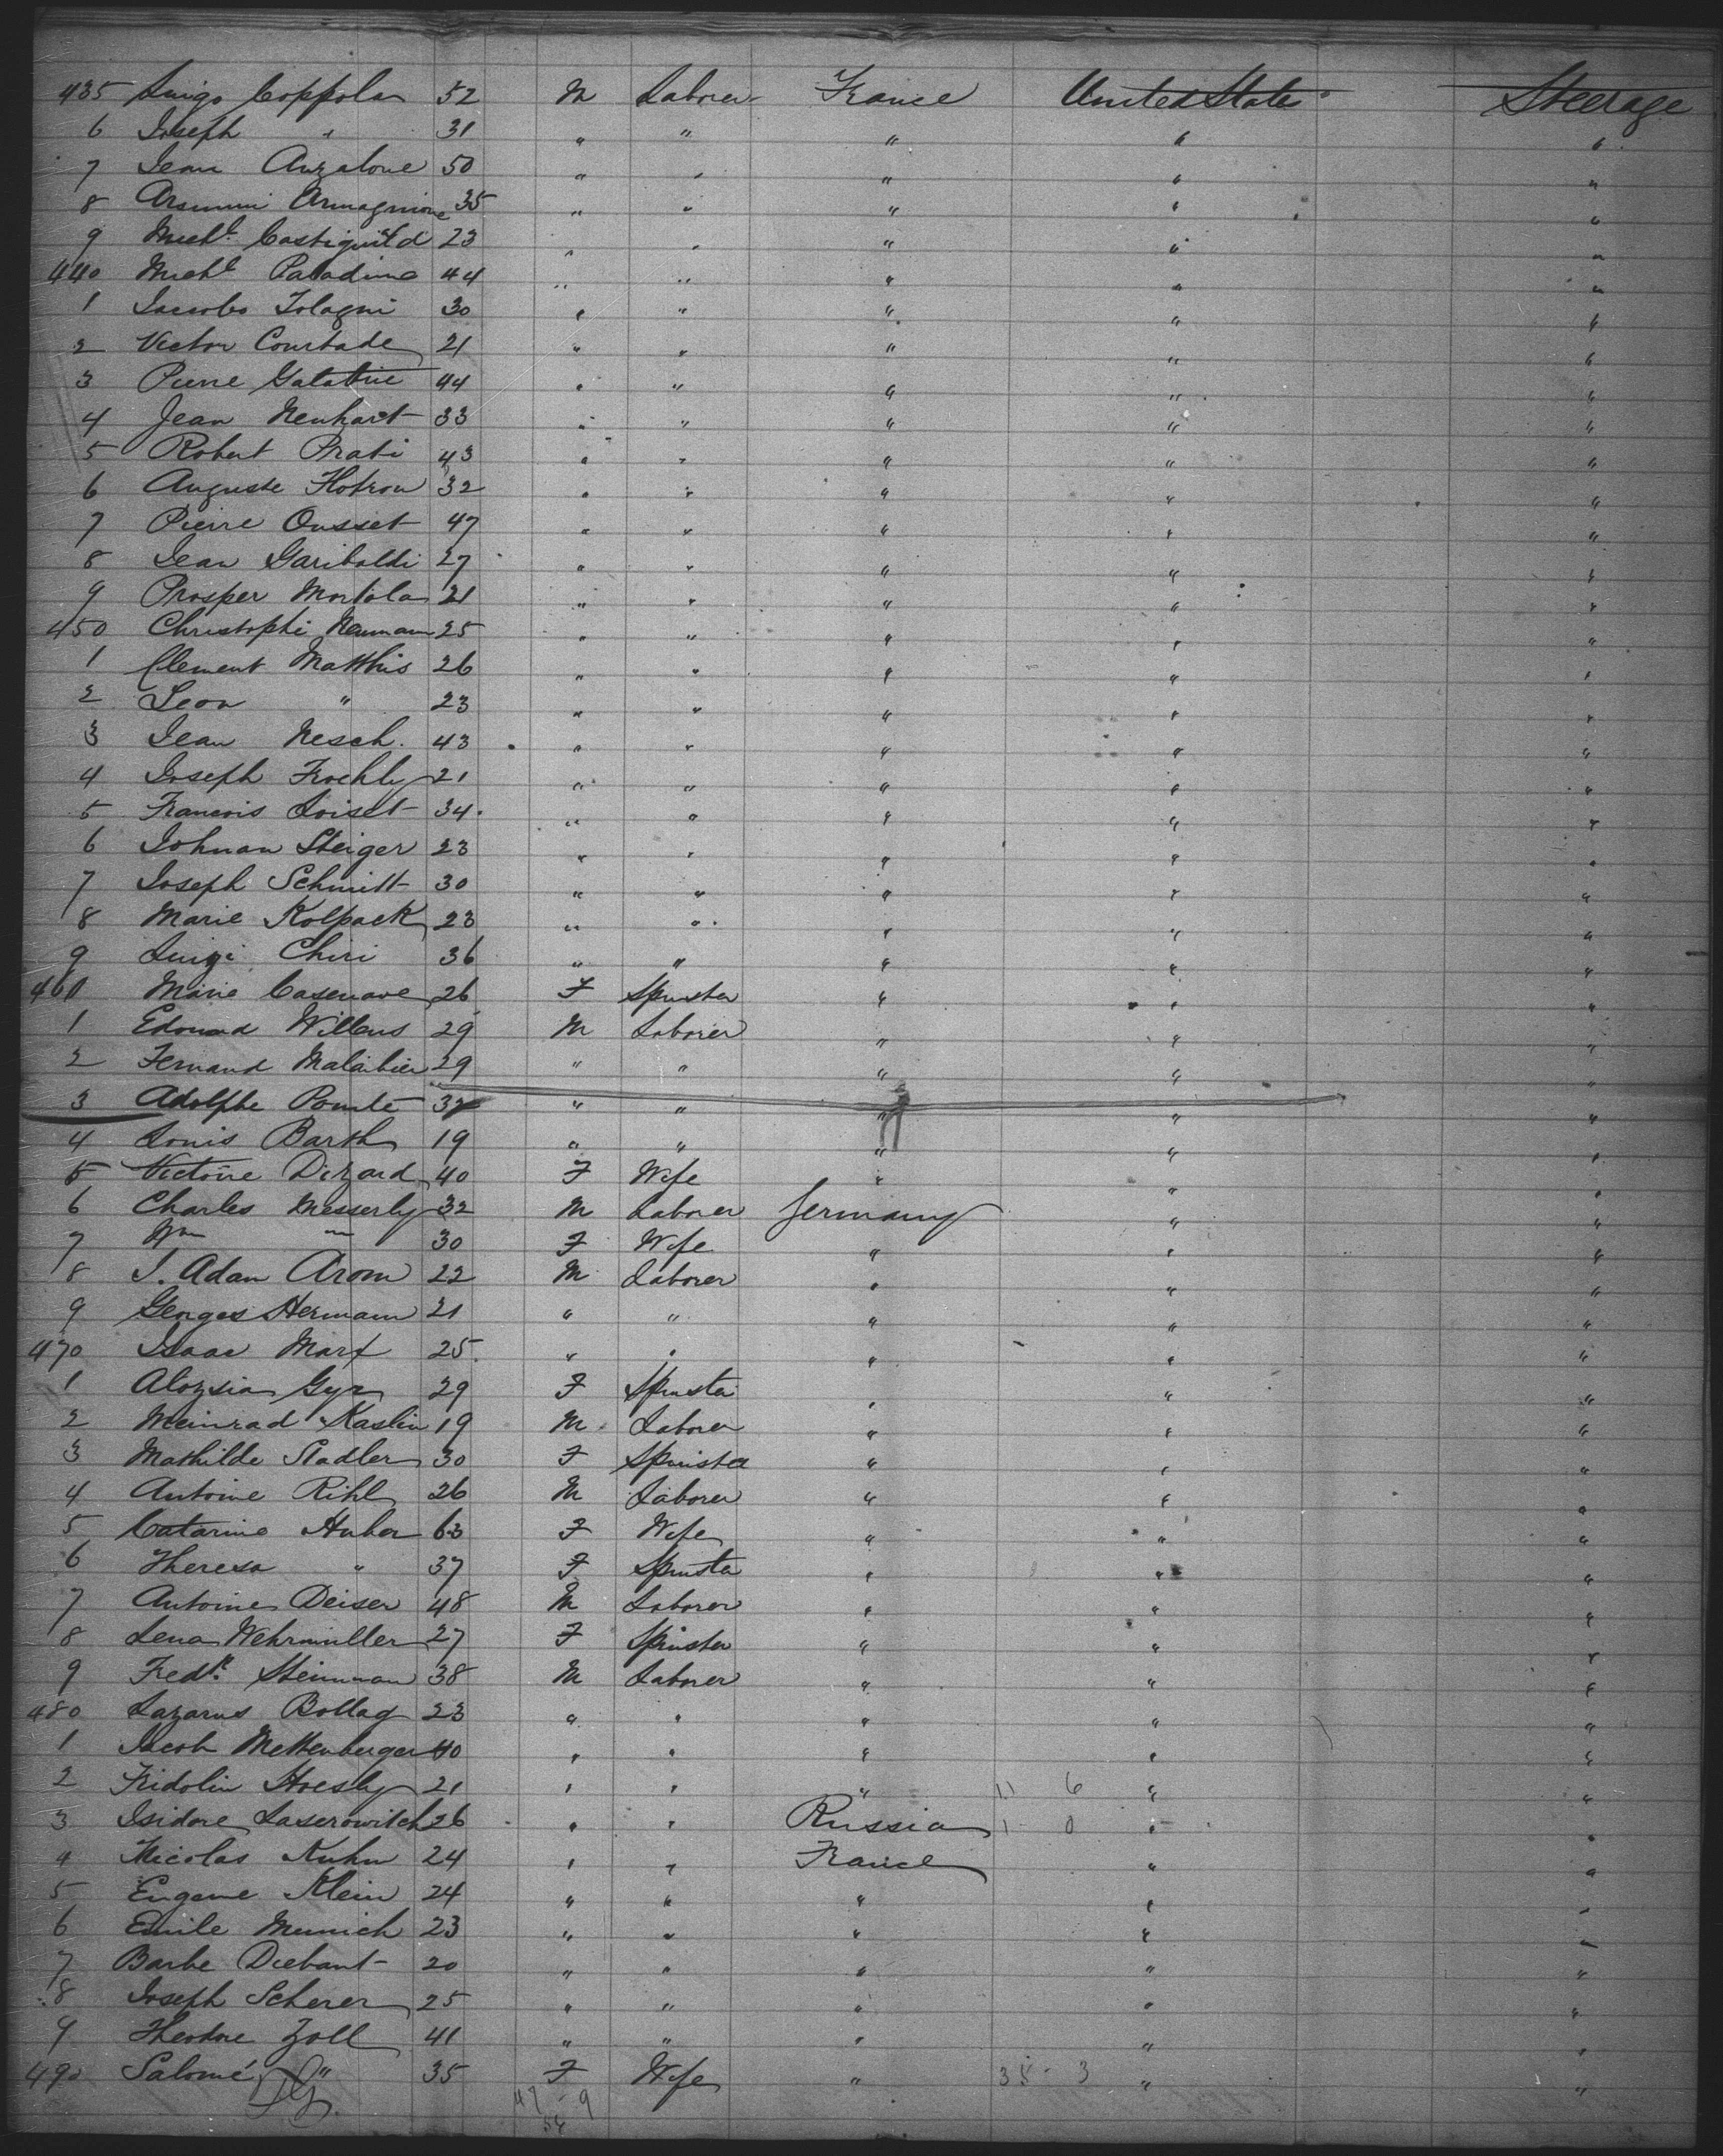 435 Luigi Coppola 52 M Laborer France United States Steerage
6 Joseph " 31 " " " " "
7 Jean Anzalone 50 " " " " "
8 Arsenni Armagnione 35 " " " " "
9 Michl. 23 " " " " "
440 Michl Paladino 44 " " " " "
1 Jacobo 30 " " " " "
2 Victor Courtade 21 " " " " "
3 Pierre 44 " " " " "
4 Jean Neuhart 33 " " " " "
5 Robert Prati 43 " " " " "
6 Auguste Hotron 32 " " " " "
7 Pierre Ousset 47 " " " " "
8 Jean Garibaldi 27 " " " " "
9 Prosper Mortola 21 " " " " "
450 Christophe Neumann 25 " " " " "
1 Clement Matthis 26 " " " " "
2 Leon " 23 " " " " "
3 Jean Nesch. 43 " " " " "
4 Joseph Froehly 21 " " " " "
5 Francois Loiset 34 " " " " "
6 Johnan Steiger 23 " " " " "
7 Joseph Schmitt 30 " " " " "
8 Marie Kolpack 23 " " " " "
9 Luigi Chiri 36 " " " " "
460 Marie Casenave 26 F Spinster " " "
1 Edouard Willems 29 M Laborer " " "
2 Fernand 29 " " " " "
3 Adolphe Pomte 32 " " " " "
4 Louis Barth 19 " " " " "
5 Victoire Dizard 40 F Wife " " "
6 Charles Messerly 32 M Laborer Germany " "
7 " 30 F Wife " " "
8 J. Adam Arom 22 M Laborer " " "
9 Georges Hermann 21 " " " " "
470 Isaac Marx 25 " " " " "
1 Aloysia Gyr 29 F Spinster " " "
2 Meinrad Kaslin 19 M Laborer " " "
3 Mathilde Stadler 30 F Spinster " " "
4 Antoine Rihl 26 M Laborer " " "
5 Catarina Huber 63 F Wife " " "
6 Theresa " 37 F Spinster " " "
7 Antoine Deiser 48 M Laborer " " "
8 Lena Wehrmuller 27 F Spinster " " "
9 Fedk. Steinman 38 M Laborer " " "
480 Lazarus Bollag 23 " " " " "
1 Jacob Mettenberger 40 " " " " "
2 Fridolin Hoesly 21 " " " 11 6 " "
3 Isidore Laserowitch 26 " " Russia 1 0 " "
4 Nicolas Kuhn 24 " " France " "
5 Eugene Klein 24 " " " " "
6 Emile Munich 23 " " " " "
7 Barbe Diebant 20 " " " " "
8 Joseph Scherer 25 " " " " "
9 Theodore Zoll 41 " " " " "
490 Salomé " 35 F Wife " 35 - 3 " "
47 - 9
56